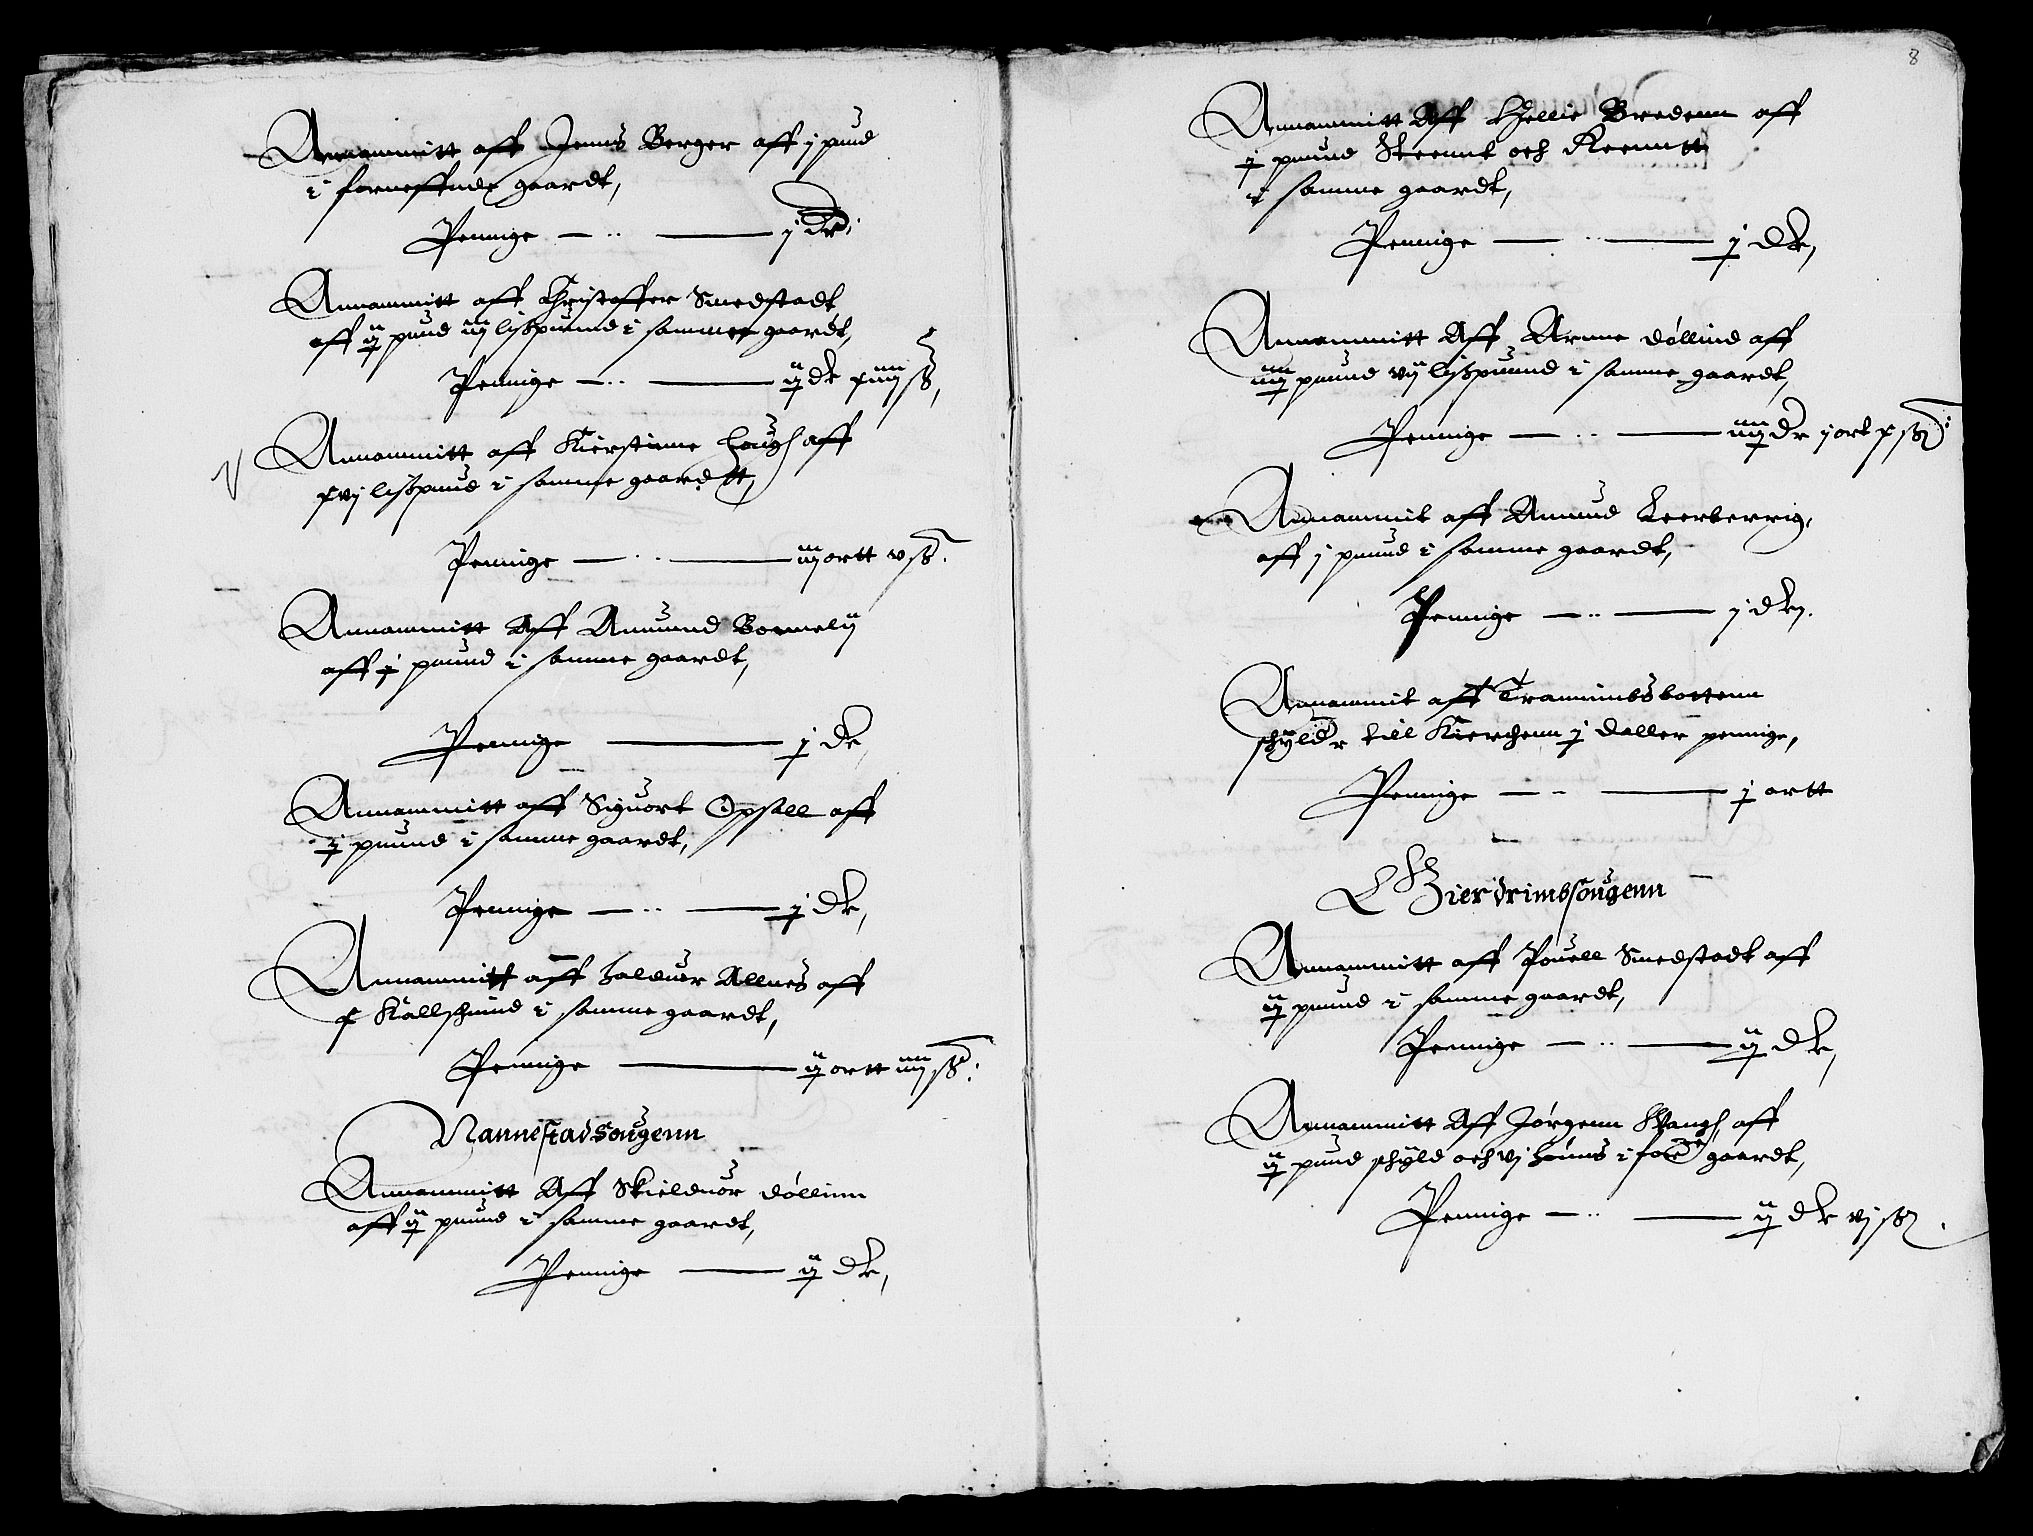 Annammitt aff Jenns Berger aff j pund
i forneffnde gaardt,
Pennige — .. — j dr:
Annammitt aff Christoffer Smedstadt
aff ij pund iij lispuund i samme gaardt,
Pennige — .. — ij dr xiiij ß,
Annammitt aff Kierstinne Hougs aff
xvj lispuud i samme gaardtt,
Pennige — .. — iij ortt v ß.
Annammitt Aff Amuund Bommelij
aff j puund i samme gaardt,
Pennige — j dr
Annammitt aff Siguort Opsall aff
j puund i samme gaardt,
Pennige — .. — j dr,
Annammitt aff Halduor Allnes aff
x Kallschinnd i samme gaardt,
Pennige — ij ortt iiij ß:
Nannestadsougenn
Annammitt Aff Skielduor Døllinn
aff ij puund i samme gaardt,
Pennige — ij dr,
8
Annammitt Aff Hellie Bredenn aff
j puund Skeennt och Reenntt
i samme gaardt,
Pennige — .. — j dr,
Annammitt Aff Arnne Døllind aff
iiij puund vij lispuund i samme gaardt,
Pennige — .. — iiij dr j ort x ß:
Annammit aff Amund Leerberrig,
aff j puund i samme gaardt,
Pennige — .. — j dr.
Annammit aff Trannimbsbottenn
schylder till Kierchenn j daller pennige,
Pennige — .. — j ortt
Gierdrimbsougenn
Annammitt aff Pouell Smedstadt aff
ij puund i samme gaardt,
Pennige — .. — ij dr,
Annammitt Aff Jørgenn Wangs aff
ij puund schyld och vj Huuns i forne gaardt,
Pennige — .. — ij dr vj ß.